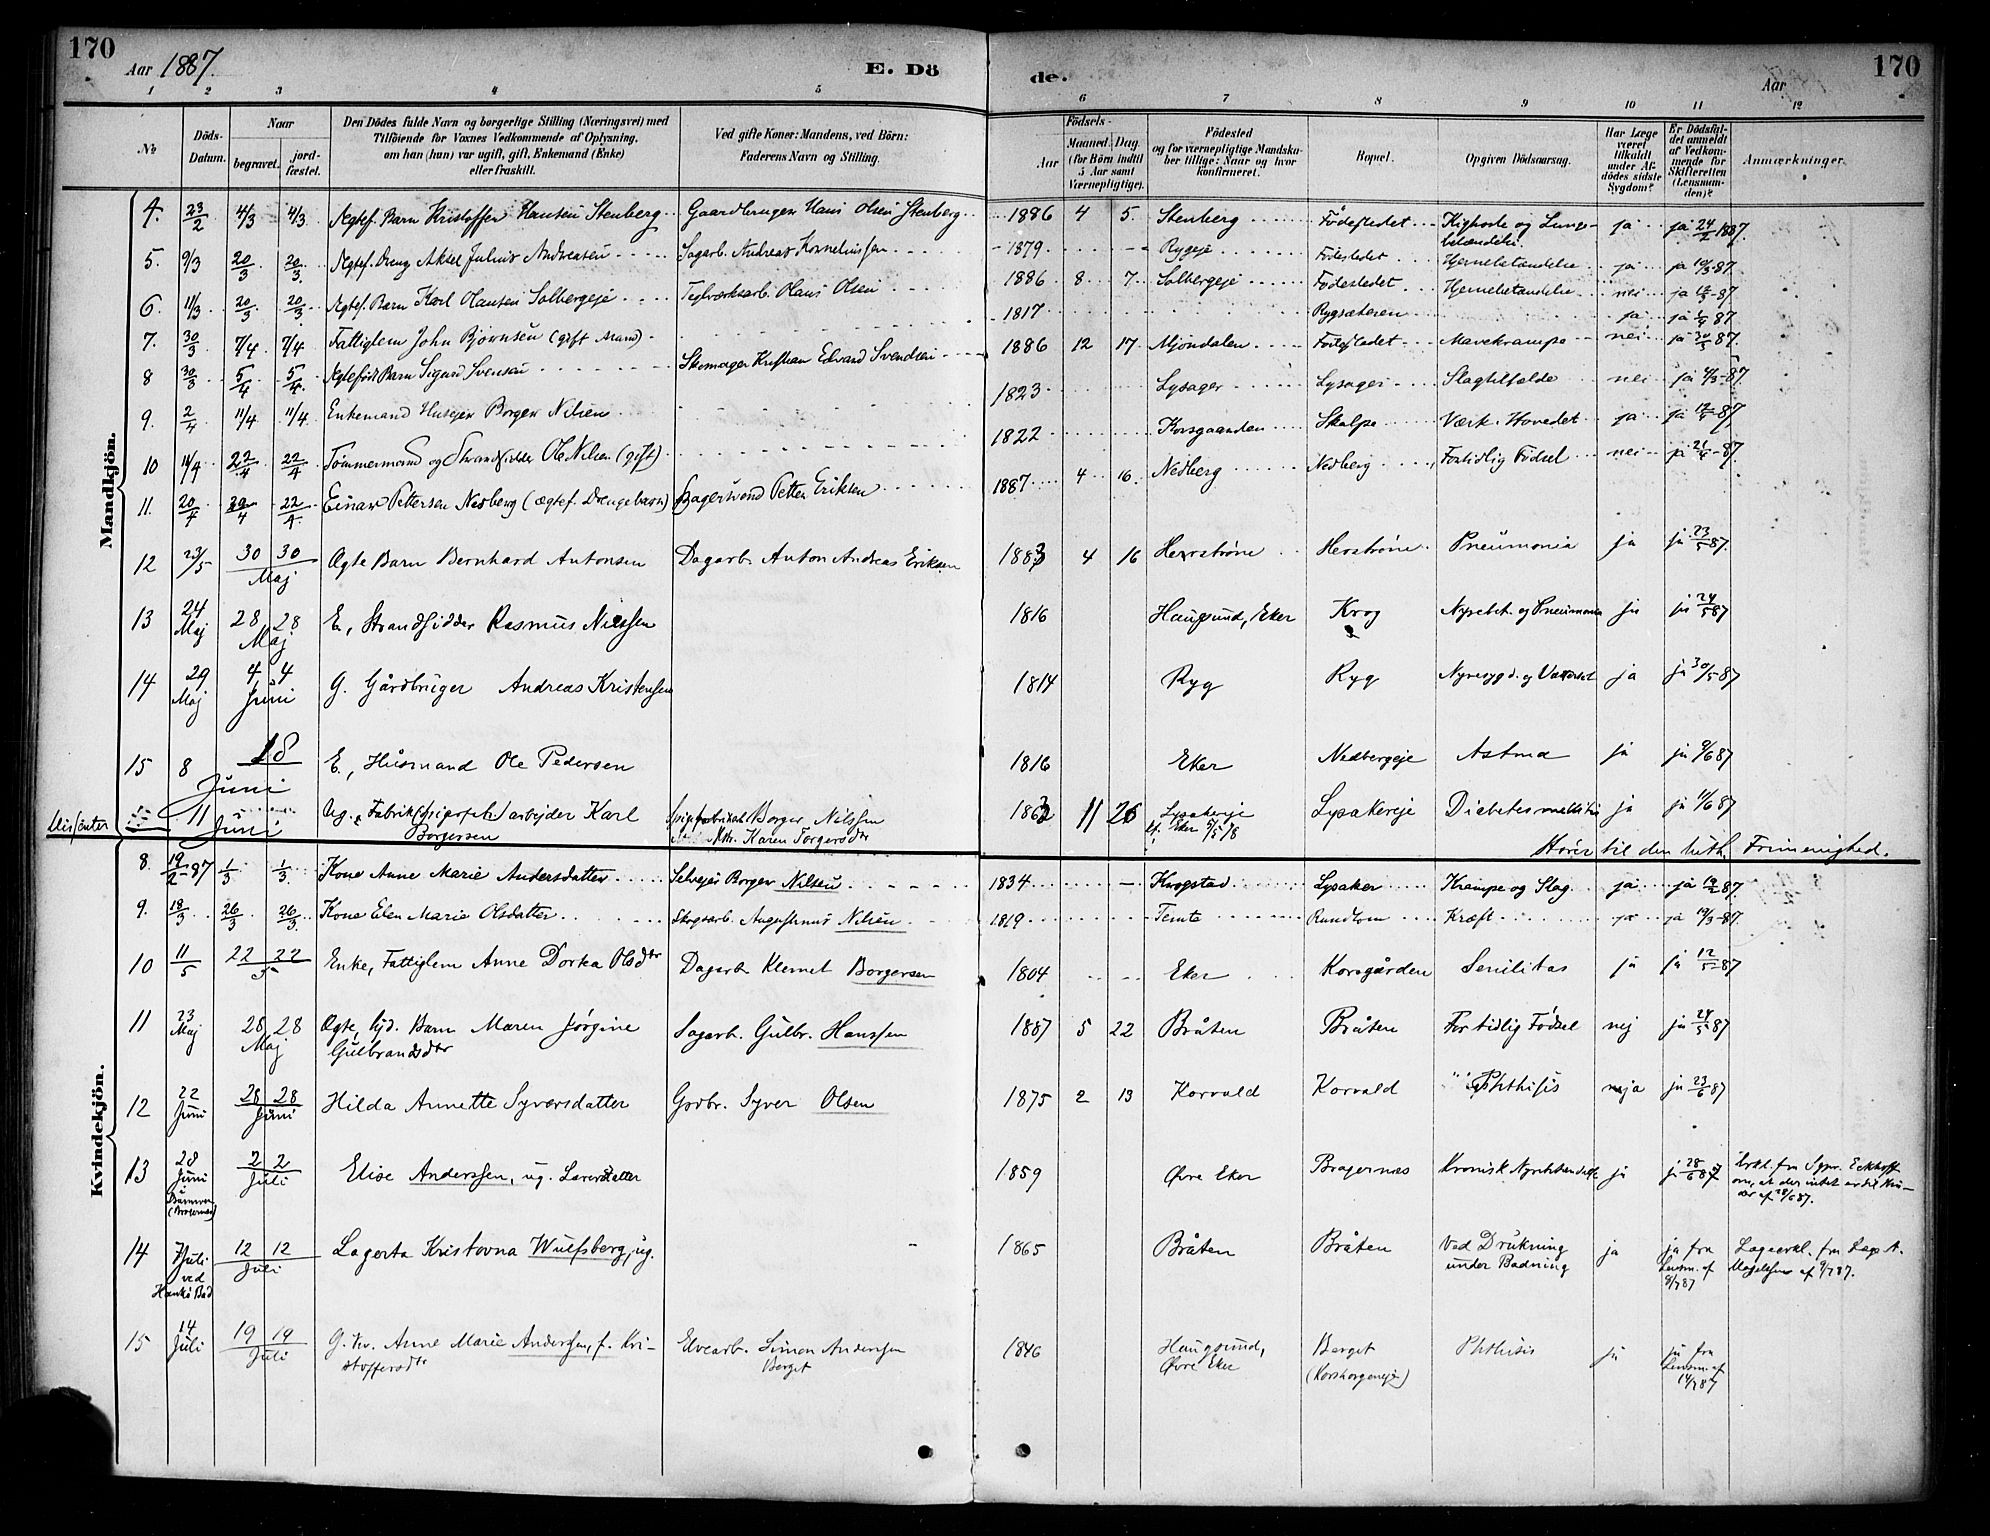 170
Aar 1887.
E. Dö
de.
Aar
170
1 2 3 4 5 6 7 8 9 10 11 12
№
Döds-
Datum.
Naar
begravet.
jord-
fæstet.
Den Dödes fulde Navn og borgerlige Stilling (Næringsvei) med
Tilföiende for Voxnes Vedkommende af Oplysning,
om han (hun) var ugift, gift, Enkemand (Enke)
eller fraskilt.
Ved gifte Koner: Mandens, ved Börn:
Faderens Navn og Stilling.
Födsels-
Aar
Maaned.
Dag.
(for Börn indtil
5 Aar samt
Værnepligtige).
Födested
og for værnepligtige Mandska-
ber tillige: Naar og hvor
konfirmeret.
Bopæl.
Opgiven Dödsaarsag.
Har Læge
været
tilkaldt
under Af-
dödes sidste
Sygdom?
Er Dödsfal-
det anmeldt
af Vedkom-
mende for
Skifteretten
(Lensman-
den)?
Anmærkninger.
Mandkjön.
4. 23/2 4/3 4/3 Ægtef. Barn Kristoffer Hansen Stenberg Gaardbruger Hans Olsen Stenberg 1886 4 5. Stenberg Fødestedet Kighoste og Lunge-
betændelse. ja ja 24/2 1887.
5. 9/3 20/3 20/3 Ægtef. Dreng Aksel Julius Andreasen Sagarb. Andreas Korneliussen 1879 Rygeje Fødestedet Hjernebetændelse ja ja 10/3 87.
6. 11/3 20/3 20/3 Ægtef. Barn Karl Hansen Solbergeje Teglværksarb. Hans Olsen 1886 8 7 Solbergeje Fødestedet Hjernebetændelse nei ja 87
7. 30/3 7/4 7/4 Fattiglem John Bjørnsen (gift Mand) 1817 Rygsæteren ja ja 87
8 30/3 5/4 5/4 Ægtefødt Barn Sigurd Svensen Skomager Kristian Edvard Svendsen 1886 12 17 Mjøndalen Fødestedet Mavekrampe nei ja 30/3 87.
9. 2/4 11/4 11/4 Enkemand Husejer Borger Nilsen 1823 Lysager Lysager Slagtilfælde nei ja 87.
10 14/4 22/4 22/4 Tømmermand og Strandsidder Ole Nilsen (gift) 1822 Korsgaarden Skalpe Værk i Hovedet ja ja 87
11. 20/4 22/4 Einar Pettersen Nedberg (ægtef. Drengebarn) Bagersvend Petter Eriksen 1887 4 16 Nedberg Nedberg Fortidlig Fødsel nei ja 21/4 87.
12 23/5 30 30 Maj Ægte Barn Bernhard Antonsen Dagarb. Anton Andreas Eriksen 1883 4 16 Herstrøne Herstrøne. Pneumonia ja ja 23/5 87.
13 24 Maj 28 28 Maj E, Strandsidder Rasmus Nilssen 1816 Haugsund, Eker Krog Nyrebet. og Pneumonia ja ja 24/5 87
14 29 Maj 4 4 Juni G. Gårdbruger Andreas Kristensen 1814 Ryg Ryg Nyresygd. og Vattersot ja ja 30/5 87
15 8 18 Juni E, Husmand Ole Pedersen 1816 Eker Nedbergeje Astma ja ja 9/6 87
Dissenter 11 Juni Ug., Fabrik arbejder Karl
Borgersen Borger Nilssen
Karen Torgersdtr 11 26 Lysakereje
Eker 5/5 78 Lysakereje Diabetes mellitus ja ja 11/6 87
Hører til den luth. Frimenighed.
Kvindekjön.
8. 19/2 87 1/3 1/3 Kone Anne Marie Andersdatter Selvejer Borger Nilsen 1834 Krogstad Lysaker Krampe og Slag ja ja 19/2 87.
9. 18/3 26/3 26/3 Kone Elen Marie Olsdatter Skogarb. Augustinus Nilsen 1819 Temte Rundtom Kræft ja 19/3 87.
10 11/5 22 22 5 Enke, Fattiglem Anne Dorka Olsdtr Dagarb. Klemet Borgersen 1804 Eker Korsgården Senilitas ja ja 12/5 87
11 23 Maj 28 28 Maj Ægte, hjd. Barn Maren Jørgine
Gulbrandsdtr Sagarb. Gulbr. Hanssen 1887 5 22 Bråten Bråten For tidlig Fødsel nej ja 24/5 87
12 22 Juni 28 28 Juni Hilda Annette Syversdatter Gdbr. Syver Olsen 1875 2 13 Korvald Korvald Phthisis ja ja 23/6 87
13 28 Juni (Bragernæs) 2 2 Juli Elise Anderssen, ug. 1859 Øvre Eker Bragernæs Kronisk Nyrebetændelse ja ja 28/6 87
14 7 Juli ved Hankø Bad 12 12 Juli Lagerta Kristovna Wulfsberg, ug. 1865 Bråten Bråten Ved Drukning
under Badning ja ja fra
Lensm. af
8/7 87 Lægeerkl. fra Læge A.
af 9/7 87.
15 14 Juli 19 19 Juli G. Kv. Anne Marie Anderssen, f. Kri-
stoffersdtr Elvearb. Simon Anderssen
Berget 1846 Haugsund,
Øvre Eker Berget
(Korsborgeneje) Phthisis ja ja fra
Lensm. af
14/7 87